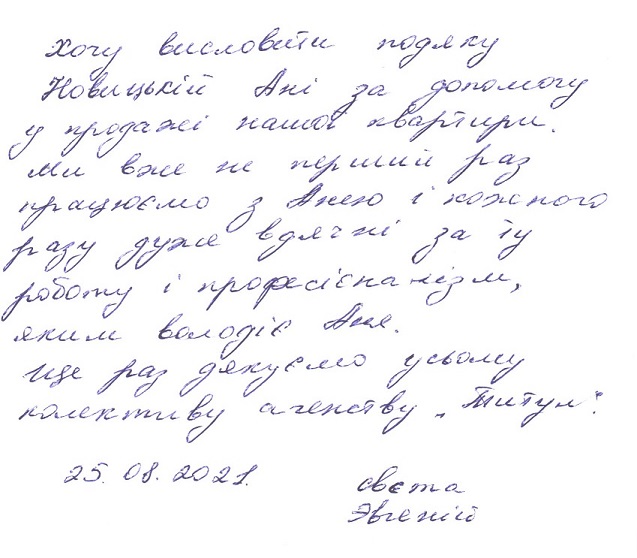 Хочу висловити подяку
Новицькій Ані за допомогу
у продажі нашої квартири.
Ми вже не перший раз
працюємо з Анею і кожного
разу дуже вдячні за ту
роботу і професієналізм,
яким володіє Аня.
Ще раз дякуємо усьому
колективу агенству „Титул“.
25.08.2021.
Свєта
Эвгеній